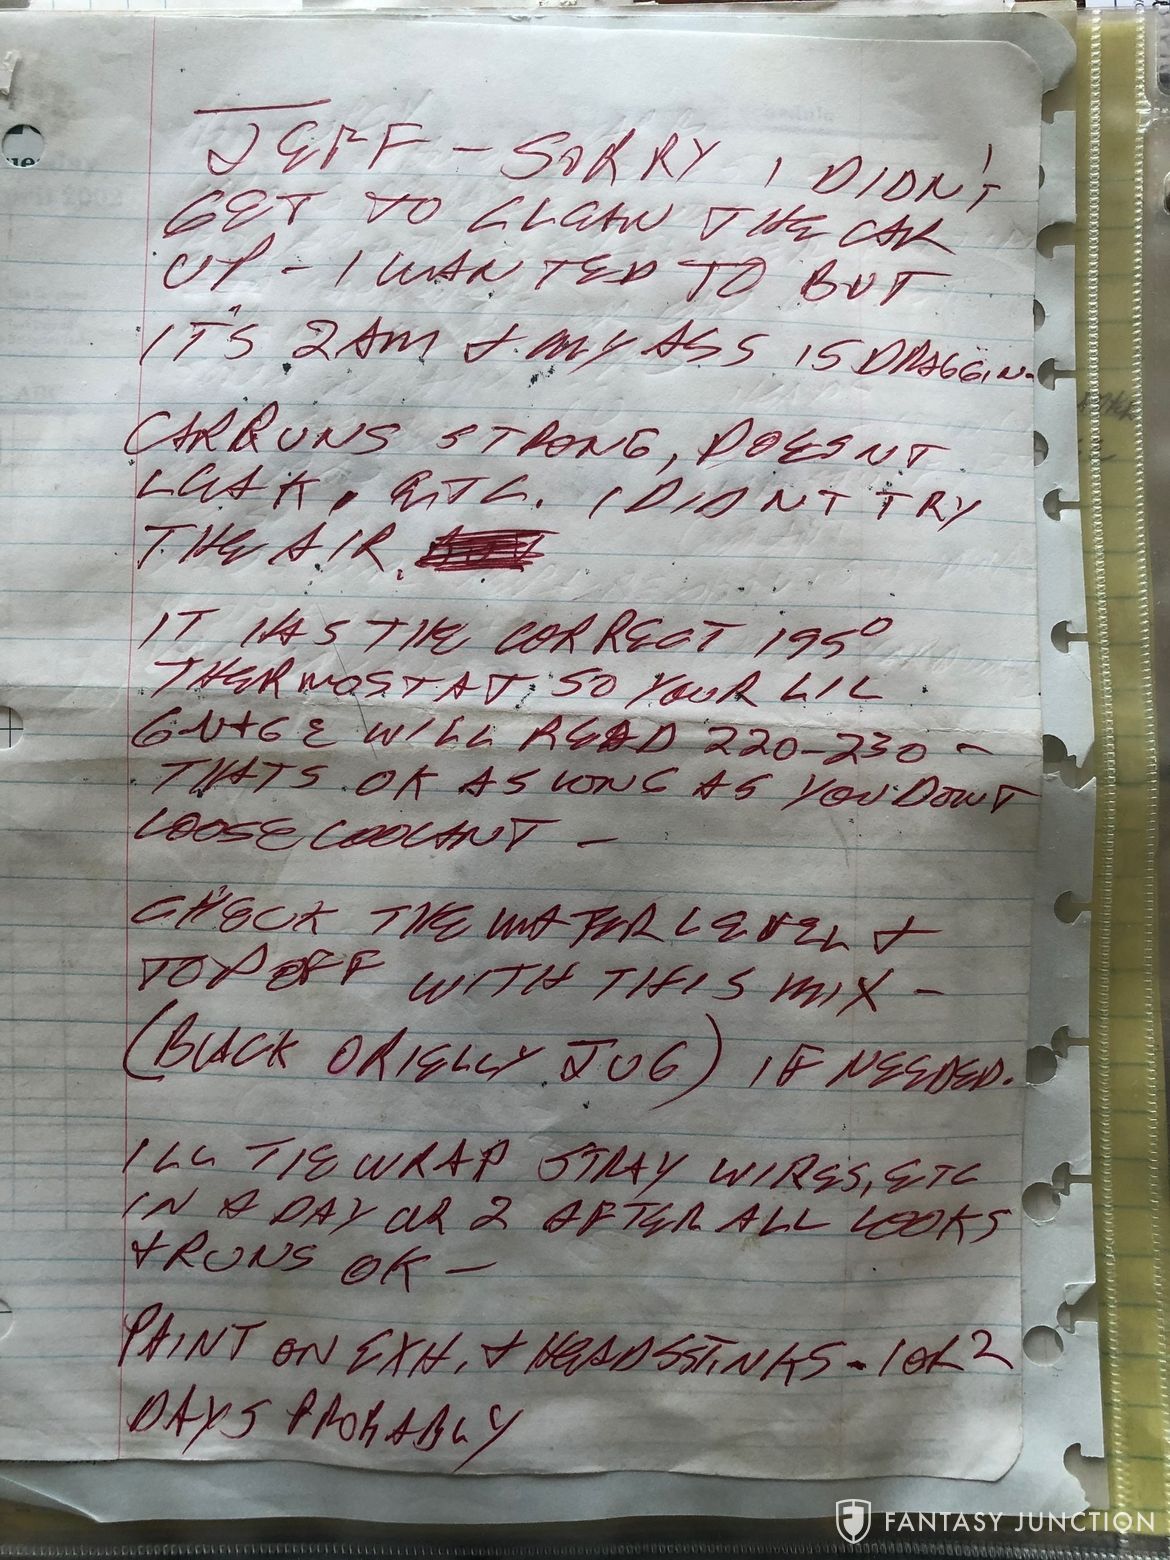 JEFF - SORRY I DIDN'T
GET TO CLEAN THE CAR
UP - I WANTED TO BUT
IT'S 2AM & MY ASS IS DRAGGIN-
CAR RUNS STRONG, DOESNT
LEAK, ETC. I DIDNT TRY
THE AIR.
IT HAS THE CORRECT 195°
THERMOSTAT SO YOUR LIL
GUAGE WILL READ 220-230 -
THATS OK AS LONG AS YOU DONT
LOOSE COOLANT -
CHECK THE WATER LEVEL &
TOP OFF WITH THIS MIX -
(BLACK ORIELLY JUG) IF NEEDED.
ILL TIE WRAP STRAY WIRES, ETC
IN A DAY OR 2 AFTER ALL LOOKS
& RUNS OK -
PAINT ON EXH. & HEADS STINKS - 1 OR 2
DAYS PROBABLY
FANTASY JUNCTION